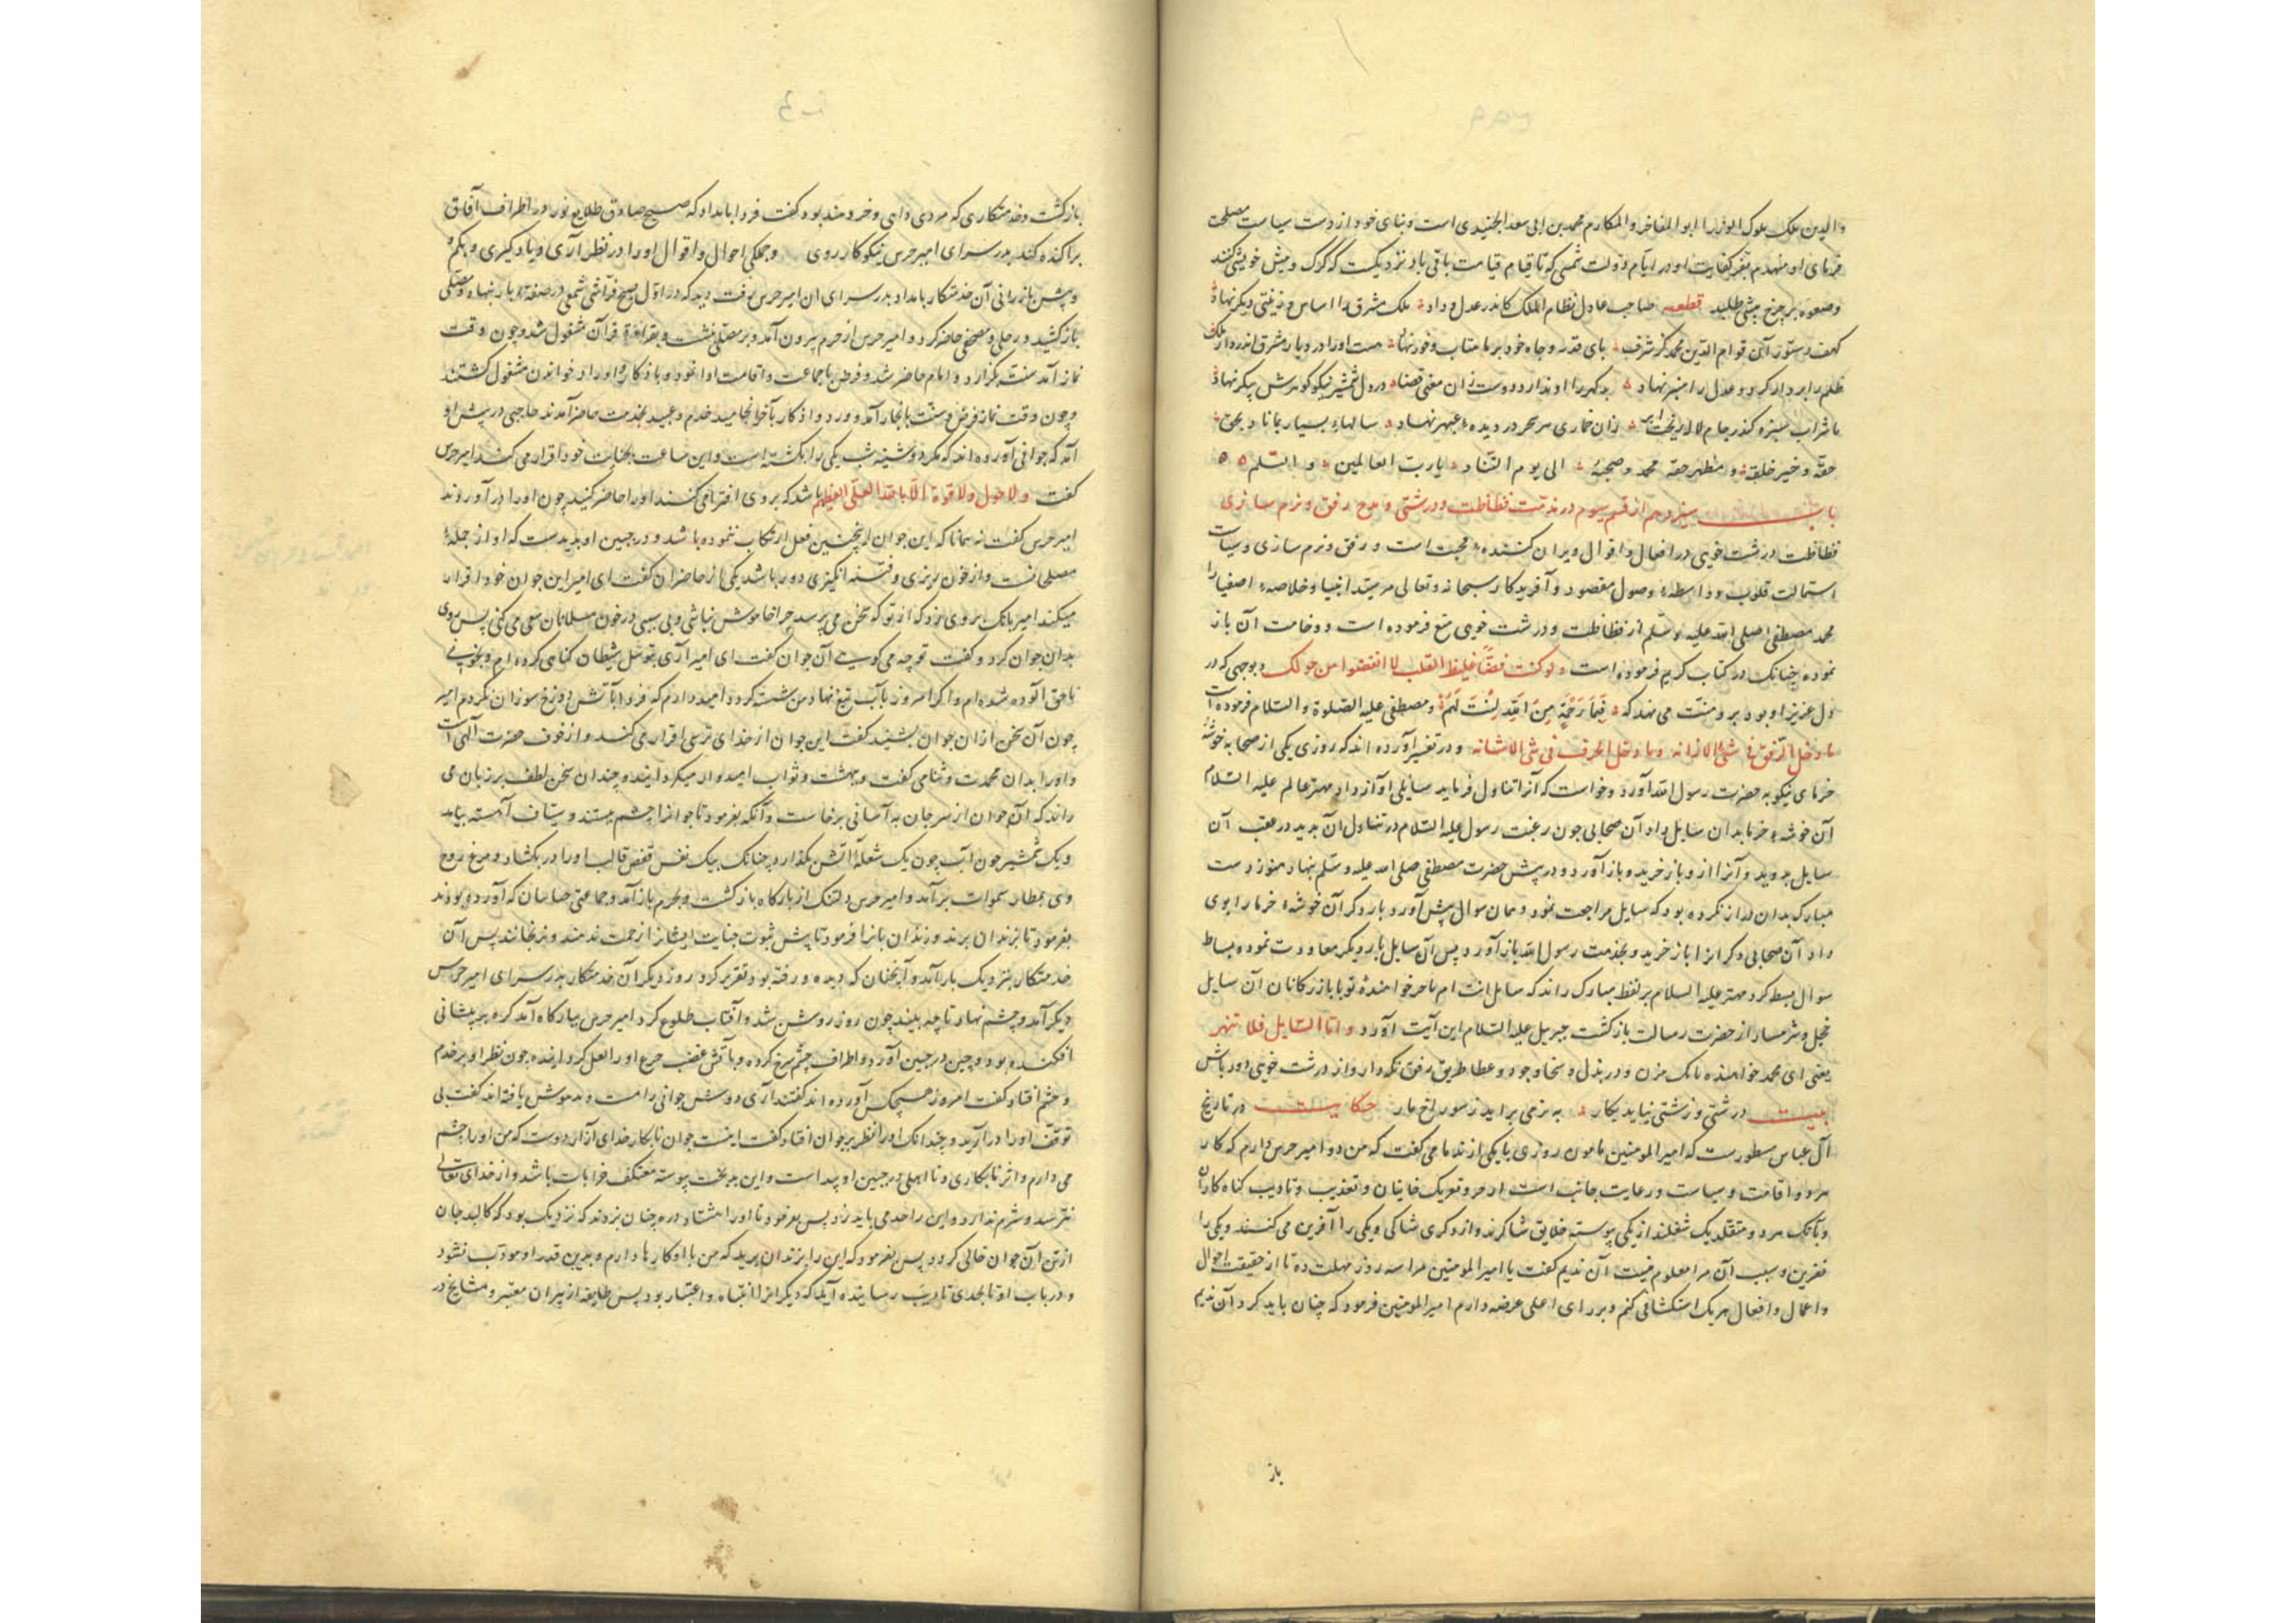 والدین ملک ملوک الوزرا ابو المفاخر والمکارم محمد بن ابی سعد الجنیدی است و بنای خود از دست سیاست مصلحت
فرمای او منهدم بفر کفایت او در ایام دولت شمسی که تا قیام قیامت باقی باد نزدیکست که گرگ و میش خویشی کنند
وصعوه بر چرخ پیشی طلبد قطعه صاحب عادل نظام الملک کاندر عدل و داد ملک مشرق را اساس و زینتی دیگر نهاد
کهف دستور آن قوام الدین محمد کز شرف پای قدر و جاه خود بر ماهتاب و خور نهاد هست او را در دیار مشرق اندر
ظلم را بردار کرد و عدل را منبر نهاد بد گهر را او ندارد دوست زان معنی قضا در دل شمشیر نیکو گوهرش پیکر نهاد
تا شراب سبزه گذر جام لاله ریخت ابر زان خماری هر سحر در دیده عبهر نهاد سالهای بسیار بماناد بحق
حقه و خیر خلقه و مظهر حقه محمد و صحبه الی یوم التناد یا رب العالمین و السلم
باب سیزدهم از قسم سوم در مذمت فظاظت و درشتی و مدح رفق و نرم سازی
فظاظت و درشت خویی در افعال و اقوال ویران کننده محبت است و رفق و نرم سازی و سیاست
استمالت قلوب و واسطه وصول مقصود و آفریدگار سبحانه و تعالی مر سید انبیا و خلاصه اصفیا را
محمد مصطفی صلی الله علیه و سلم از فظاظت و درشت خویی منع فرموده است و وخامت آن باز
نموده چنانک در کتاب کریم فرموده است ولو کنت فضا غلیظ القلب لا انفضوا من حولک و بوجهی که در
دل عزیز او بود برو منت می نهد که فبما رحمة من الله لنت لهم و مصطفی علیه الصلوة والسلام فرموده است
ما دخل الرفق فی شئ الا زانه و ما دخل الخرق فی شئ الا شانه و در تفسیر آورده اند که روزی یکی از صحابه خوشه
خرمای نیکو به حضرت رسول الله آورد و خواست که آنرا تناول فرماید سایلی آواز داد مهتر عالم علیه السلام
آن خوشه خرما بدان سایل داد آن صحابی چون رغبت رسول علیه السلام در تناول آن بدید در عقب آن
سایل بدوید و آنرا ازو باز خرید و باز آورد و در پیش حضرت مصطفی صلی الله علیه و سلم بنهاد هنوز دست
مبارک بدان دراز نکرده بود که سایل مراجعت نمود و همان سوال پیش آورد بار دگر آن خوشه خرما را بوی
داد آن صحابی دگر آنرا باز خرید و بخدمت رسول الله باز آورد پس آن سایل بار دیگر معاودت نموده بساط
سوال بسط کرد مهتر علیه السلام بر لفظ مبارک راند که سایل انت ام تاجر خواهنده تو یا بازرگانان آن سایل
خجل و شرمسار از حضرت رسالت بازگشت جبریل علیه السلام این آیت آورد و اما السایل فلا تنهر
یعنی ای محمد خواهنده بانک مزن و در بذل و سخا و جود و عطا طریق رفق نگه دار و از درشت خویی دور باش
بیت درشتی و زشتی نیاید بکار به نرمی براید ز سوراخ مار حکایت در تاریخ
آل عباس مسطورست که امیر المومنین مامون روزی با یکی از ندما می گفت که من دو امیر حرس دارم که کار
هر دو اقامت و سیاست و رعایت جانب است از مر و تعریک خاینان و تعذیب و تادیب گناه کاران
و بآنک هر دو متقلد یک شغلند از یکی پیوسته خلایق شاکرند و از دگری شاکی و یکی را آفرین می کنند و یکی را
نفرین و سبب آن مرا معلوم نیست آن ندیم گفت یا امیر المومنین مرا سه روز مهلت ده تا از حقیقت احوال
و اعمال و افعال هر یک استکشافی کنم و بر رای اعلی عرضه دارم امیر المومنین فرمود که چنان باید کرد آن ندیم
باز
بازگشت و خدمتکاری که مردی داهی و خردمند بود گفت فردا بامداد که صبح صادق طلایع نور در اطراف آفاق
پراکنده کند بدر سرای امیر حرس نیکو کار روی و جملگی احوال و اقوال او را در نظر آری و یاد گیری و بحکم
و پیش باز رانی آن خدمتکار بامداد بدر سرای ان امیر حرس رفت دید که در اول صبح فراشی شمعی در صفه بنهاد و مصلی
باز کشید و رحلی و مصحفی حاضر کرد و امیر حرس از حرم بیرون آمد و بر مصلی نشست و بقراءة قرآن مشغول شد و چون وقت
نماز آمد سنت بگزارد و امام حاضر شد و فرض با جماعت و اقامت ادا نمود و باذکار و اوراد خواندن مشغول گشتند
و چون وقت نماز فرض و سنت بانجاز آمد و ورد و اذکار بآخر انجامید خدم و عبید بخدمت حاضر آمدند حاجبی در پیش او
آمد که جوانی آورده اند که مگر دوشینه شب یکی را بکشته است و این ساعت بجنایت خود اقرار می کند امیر حرس
گفت ولا حول ولا قوة الا بالله العلی العظیم باشد که بروی افترا می کنند او را حاضر کنید چون او را در آوردند
امیر حرس گفت نه همانا که این جوان اینچنین فعل ارتکاب نموده باشد و در جبین او پدیدست که او از جمله
مصلحانست و از خون ریزی و فتنه انگیزی دور باشد یکی از حاضران گفت ای امیر این جوان خود اقرار
میکند امیر بانک بروی زد که از تو که سخن می پرسد چرا خاموش نباشی و بی سببی در خون مسلمانان سعی می کنی پس روی
بدان جوان کرد و گفت تو چه می گویی آن جوان گفت ای امیر آری بتوسل شیطان گناهی کرده ام و بخونی
ناحق آلوده شده ام و اگر امروز بآب تیغ نهاد من شسته گردد امید دارم که فردا بآتش دوزخ سوزان نگردم امیر
چون آن سخن ازان جوان بشنید گفت این جوان از خدای ترسی اقرار می کند و از خوف حضرت آلهی است
و او را بدان محمدت و ثنا می گفت و بهشت و ثواب امیدوار میگردانید و چندان سخن لطف بر زبان می
راند که آن جوان از سر جان به آسانی برخاست و آنگه بفرمود تا جوانرا چشم ببستند و سیاف آهسته بیامد
و بیک شمشیر چون آب چون یک شعله آتش بگذارد چنانک بیک نفس قفص قالب او را در بگشاد و مرغ روح
وی بمطار سموات برآمد و امیر حرس دلتنگ از بارگاه بازگشت و بحرم باز آمد و جماعتی جاسان که آورده بودند
بفرمود تا بزندان برند و زندان بانرا فرمود تا پیش ثبوت جنایت ایشانرا زحمت ندهند و نرنجانند پس آن
خدمتکار بنزدیک یار آمد و آنچنان که دیده و رفته بود تقریر کرد روز دیگر آن خدمتکار بدر سرای امیر حرس
دیگر آمد و چشم نهاد تا چه بیند چون روز روشن شد و آفتاب طلوع کرد امیر حرس ببارگاه آمد گره بر پیشانی
افکنده بود و چین در جبین آورد و اطراف چشم سرخ کرده و بآتش غضب جزع او را لعل گردانیده چون نظر او بر خدم
و حشم افتاد گفت امروز هیچکس آورده اند گفتند آری دوش جوانی را مست و مدهوش یافته اند گفت بی
توقف او را در آرید و چندانک او را نظر بر جوان افتاد گفت اینت جوان نابکار خدای آزار دوست که من او را چشم
می دارم و اثر نابکاری و نا اهلی در جبین او پیداست و این بدبخت پیوسته معتکف خرابات باشد و از خدای تعالی
نترسد و شرم ندارد و این را حد می باید زد پس بفرمود تا او را هشتاد دره چنان بزدند که نزدیک بود که کالبد جان
از تن آن جوان خالی کردد پس بفرمود که این را بزندان برید که من با او کارها دارم و بدین قدر او مودب نشود
و در باب او تا بحدی تادیب رسانیده آید که دیگرانرا انتباه و اعتبار بود پس طایفه از پیران معتبر و مشایخ در